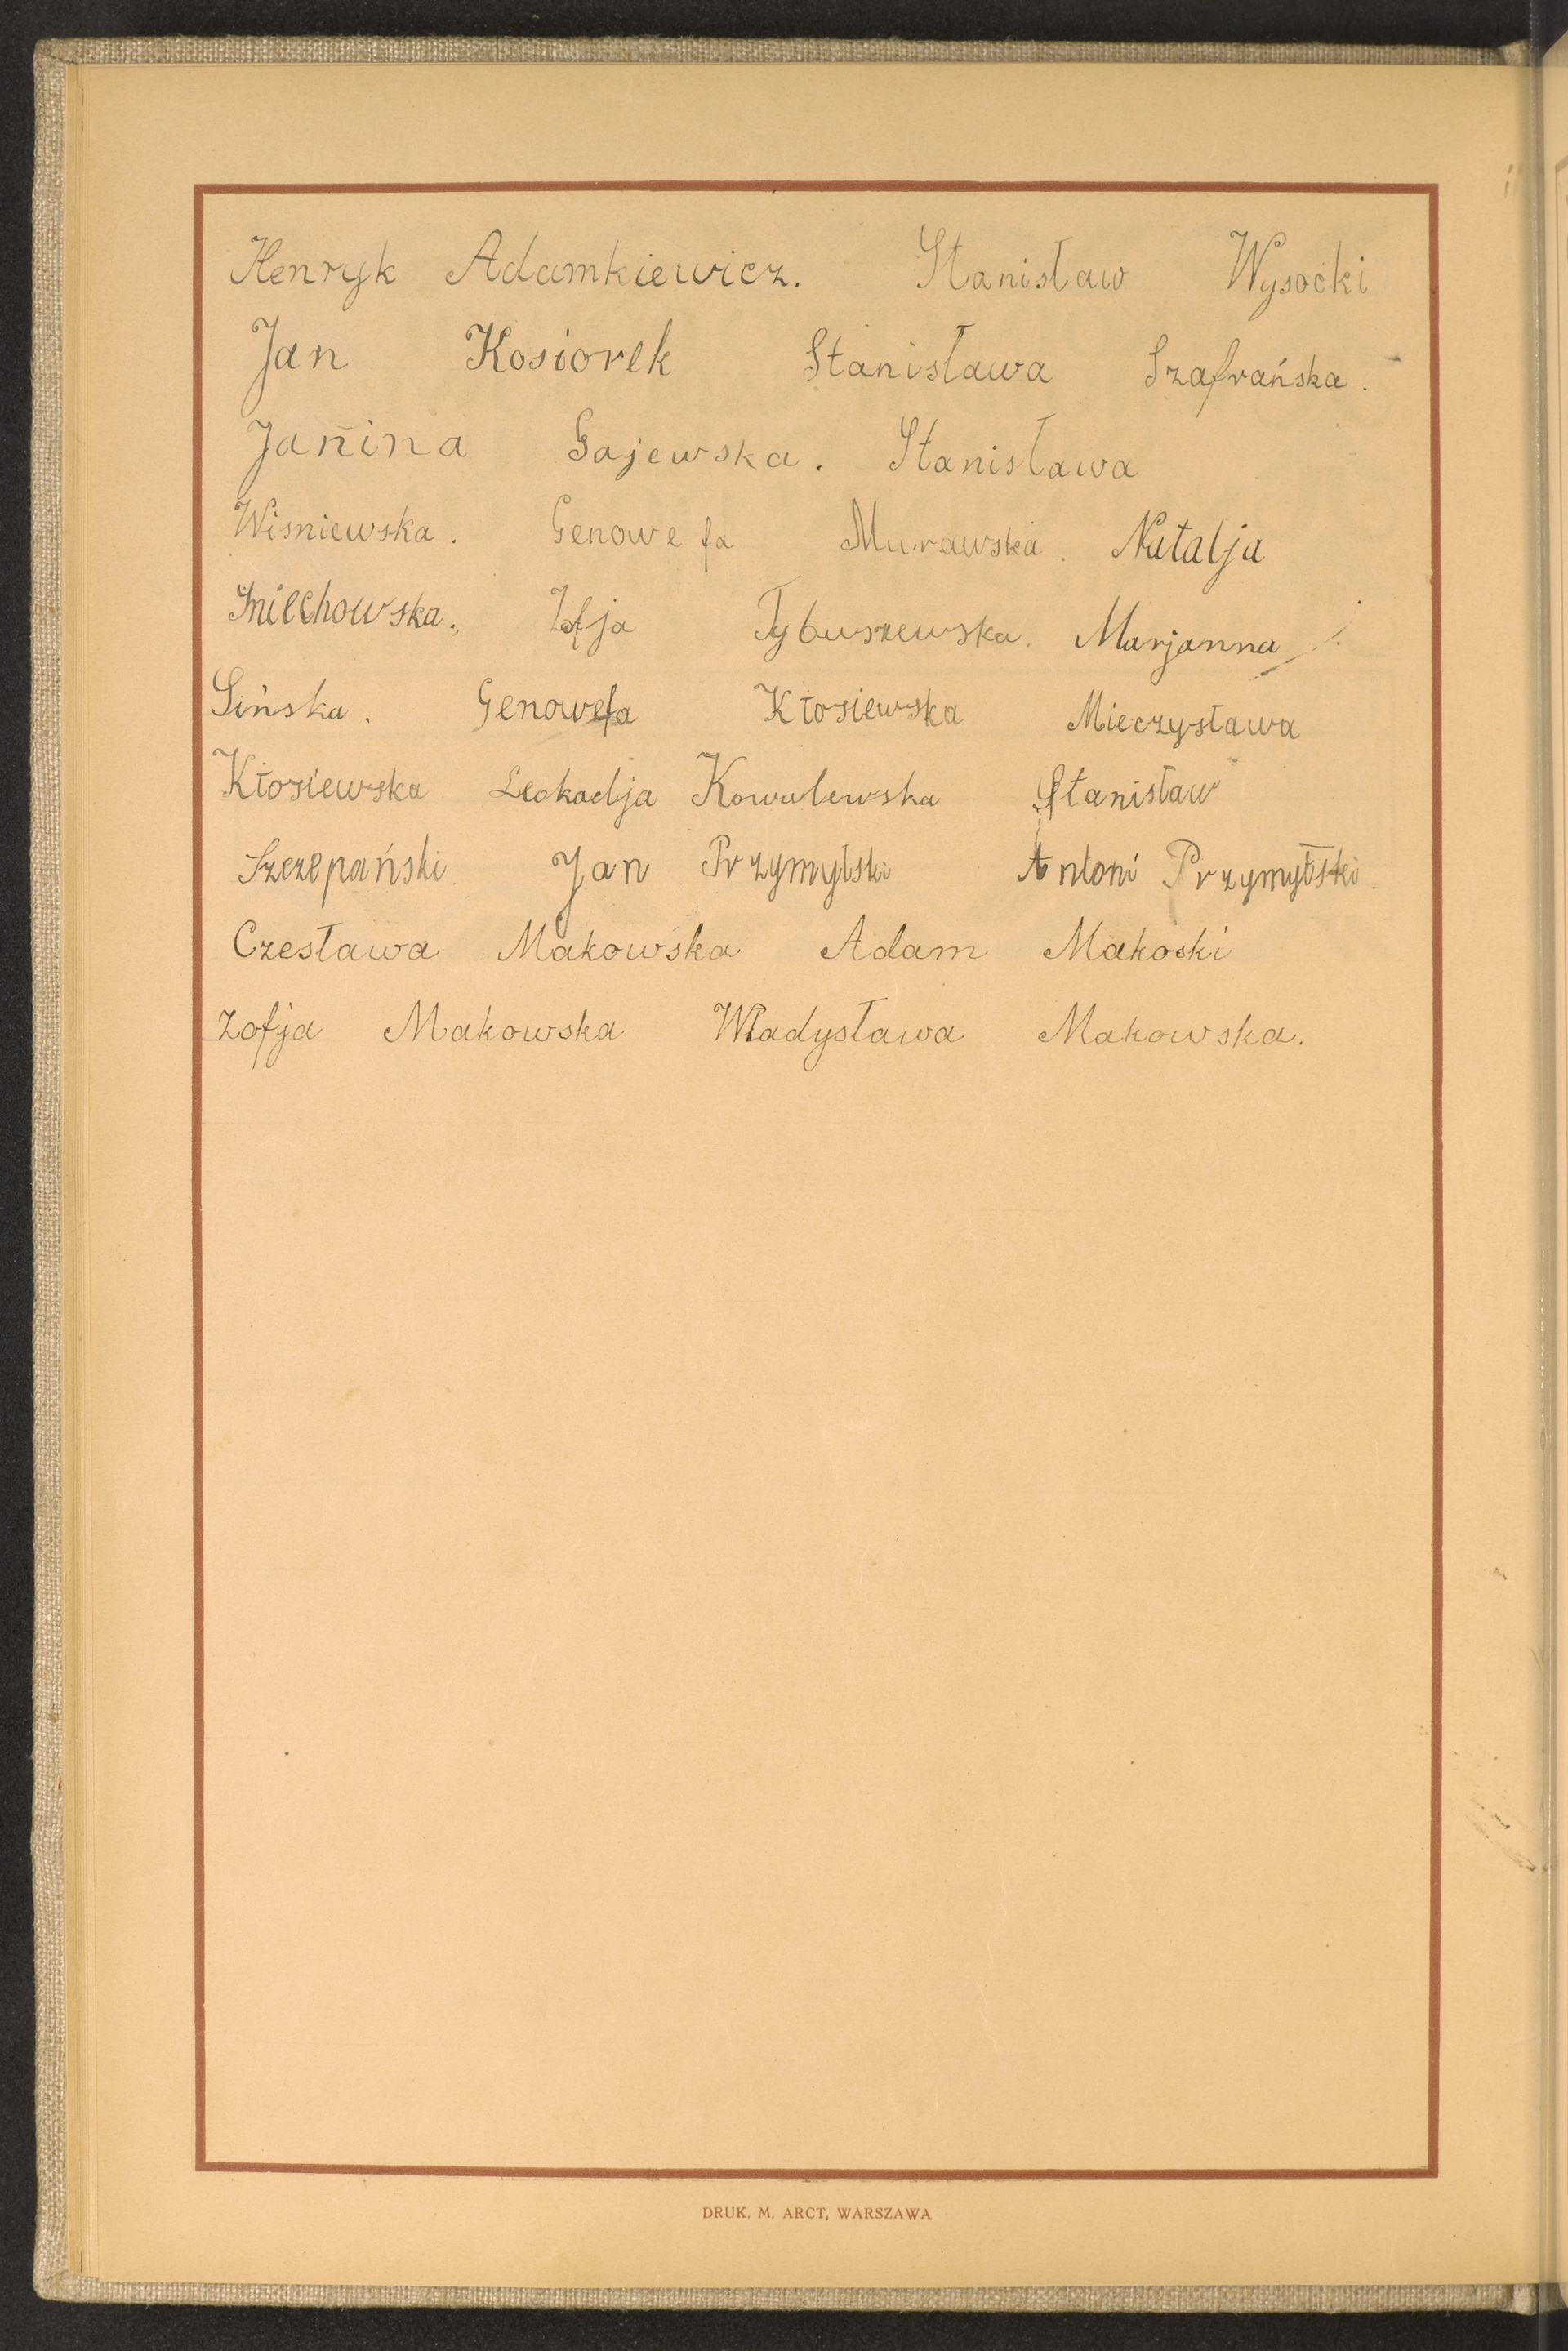 Henryk Adamkiewicz. Stanisław Wysocki
Jan Kosiorek Stanisława Szafrańska.
Janina Gajewska. Stanisława
Wisniewska. Genowefa Murawska. Natalja
Smiechowska. Zofja Tybuszewska. Marjanna
Sińska. Genowefa Kłosiewska Mieczysława
Kłosiewska Leokadja Kowalewska Stanisław
Szczepański Jan Przymyłski Antoni Przymyłski.
Czesława Makowska Adam Makoski
Zofja Makowska Władysława Makowska.
DRUK. M. ARCT, WARSZAWA